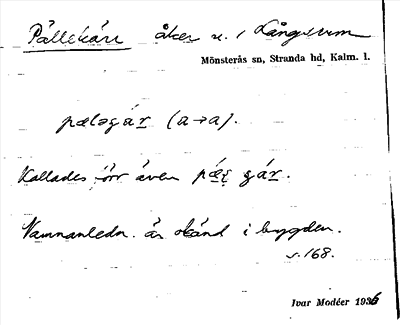 Pållekärr åker u. / Långerum
Mönsterås sn, Stranda hd, Kalm. l.
pæləgár (a→a).
Kallades förr även pǽę gár.
Namnanledn. är okänd i bygden.
s.168.
Ivar Modéer 1936